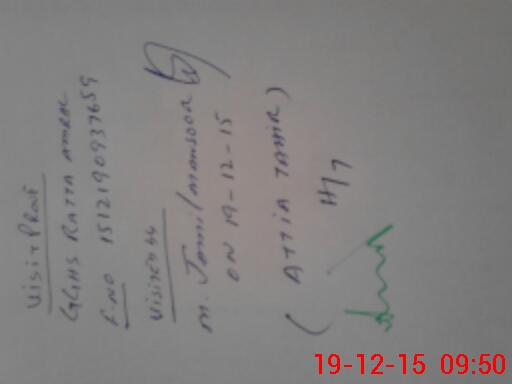 Visit Proof
GGHS RATTA AMRAL
E.NO 1512190937659
Visited by
M. Jamil mansoor
ON 19-12-15
(ATTIA TAHIR)
H/T
19-12-15 09:50